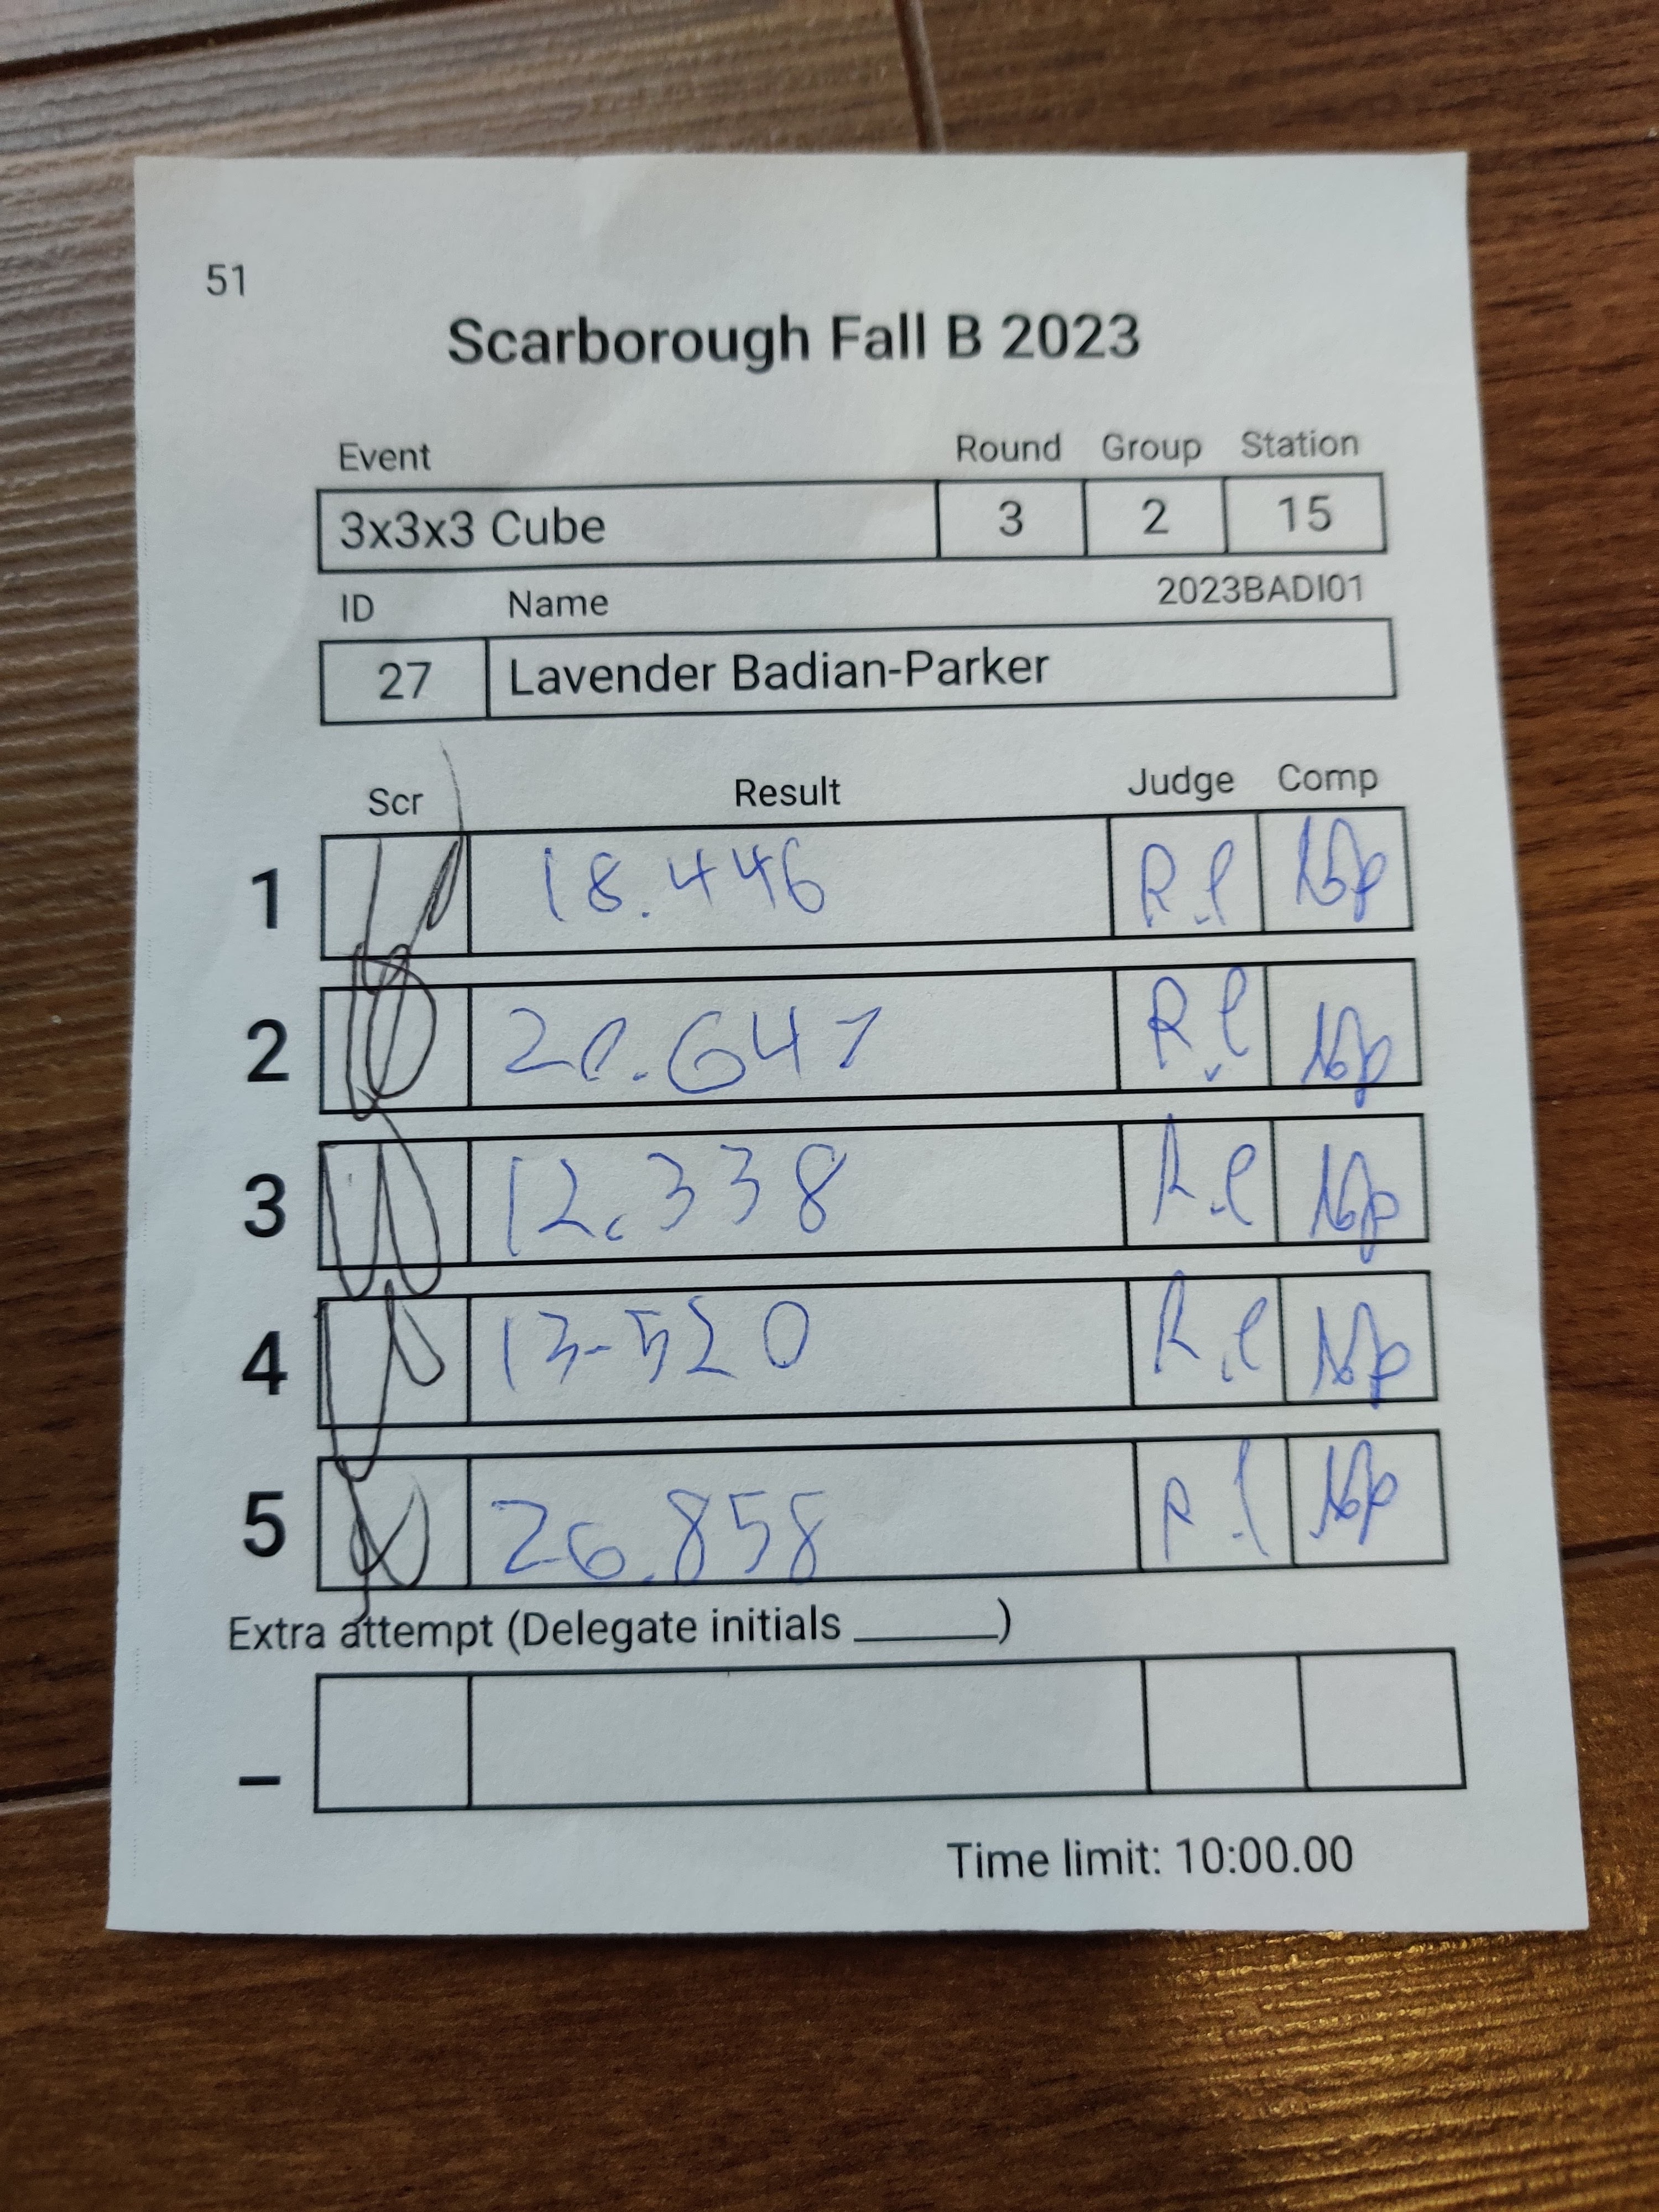 51
Scarborough Fall B 2023
Event Round Group Station
3x3x3 Cube 3 2 15
ID Name 2023BADI01
27 Lavender Badian-Parker
Scr Result Judge Comp
1 18.446 R.l
2 20.647 R.l
3 12.338 R.l
4 13.520 R.l
5 26.858 R.l
Extra attempt (Delegate initials ______)
_
Time limit: 10:00.00